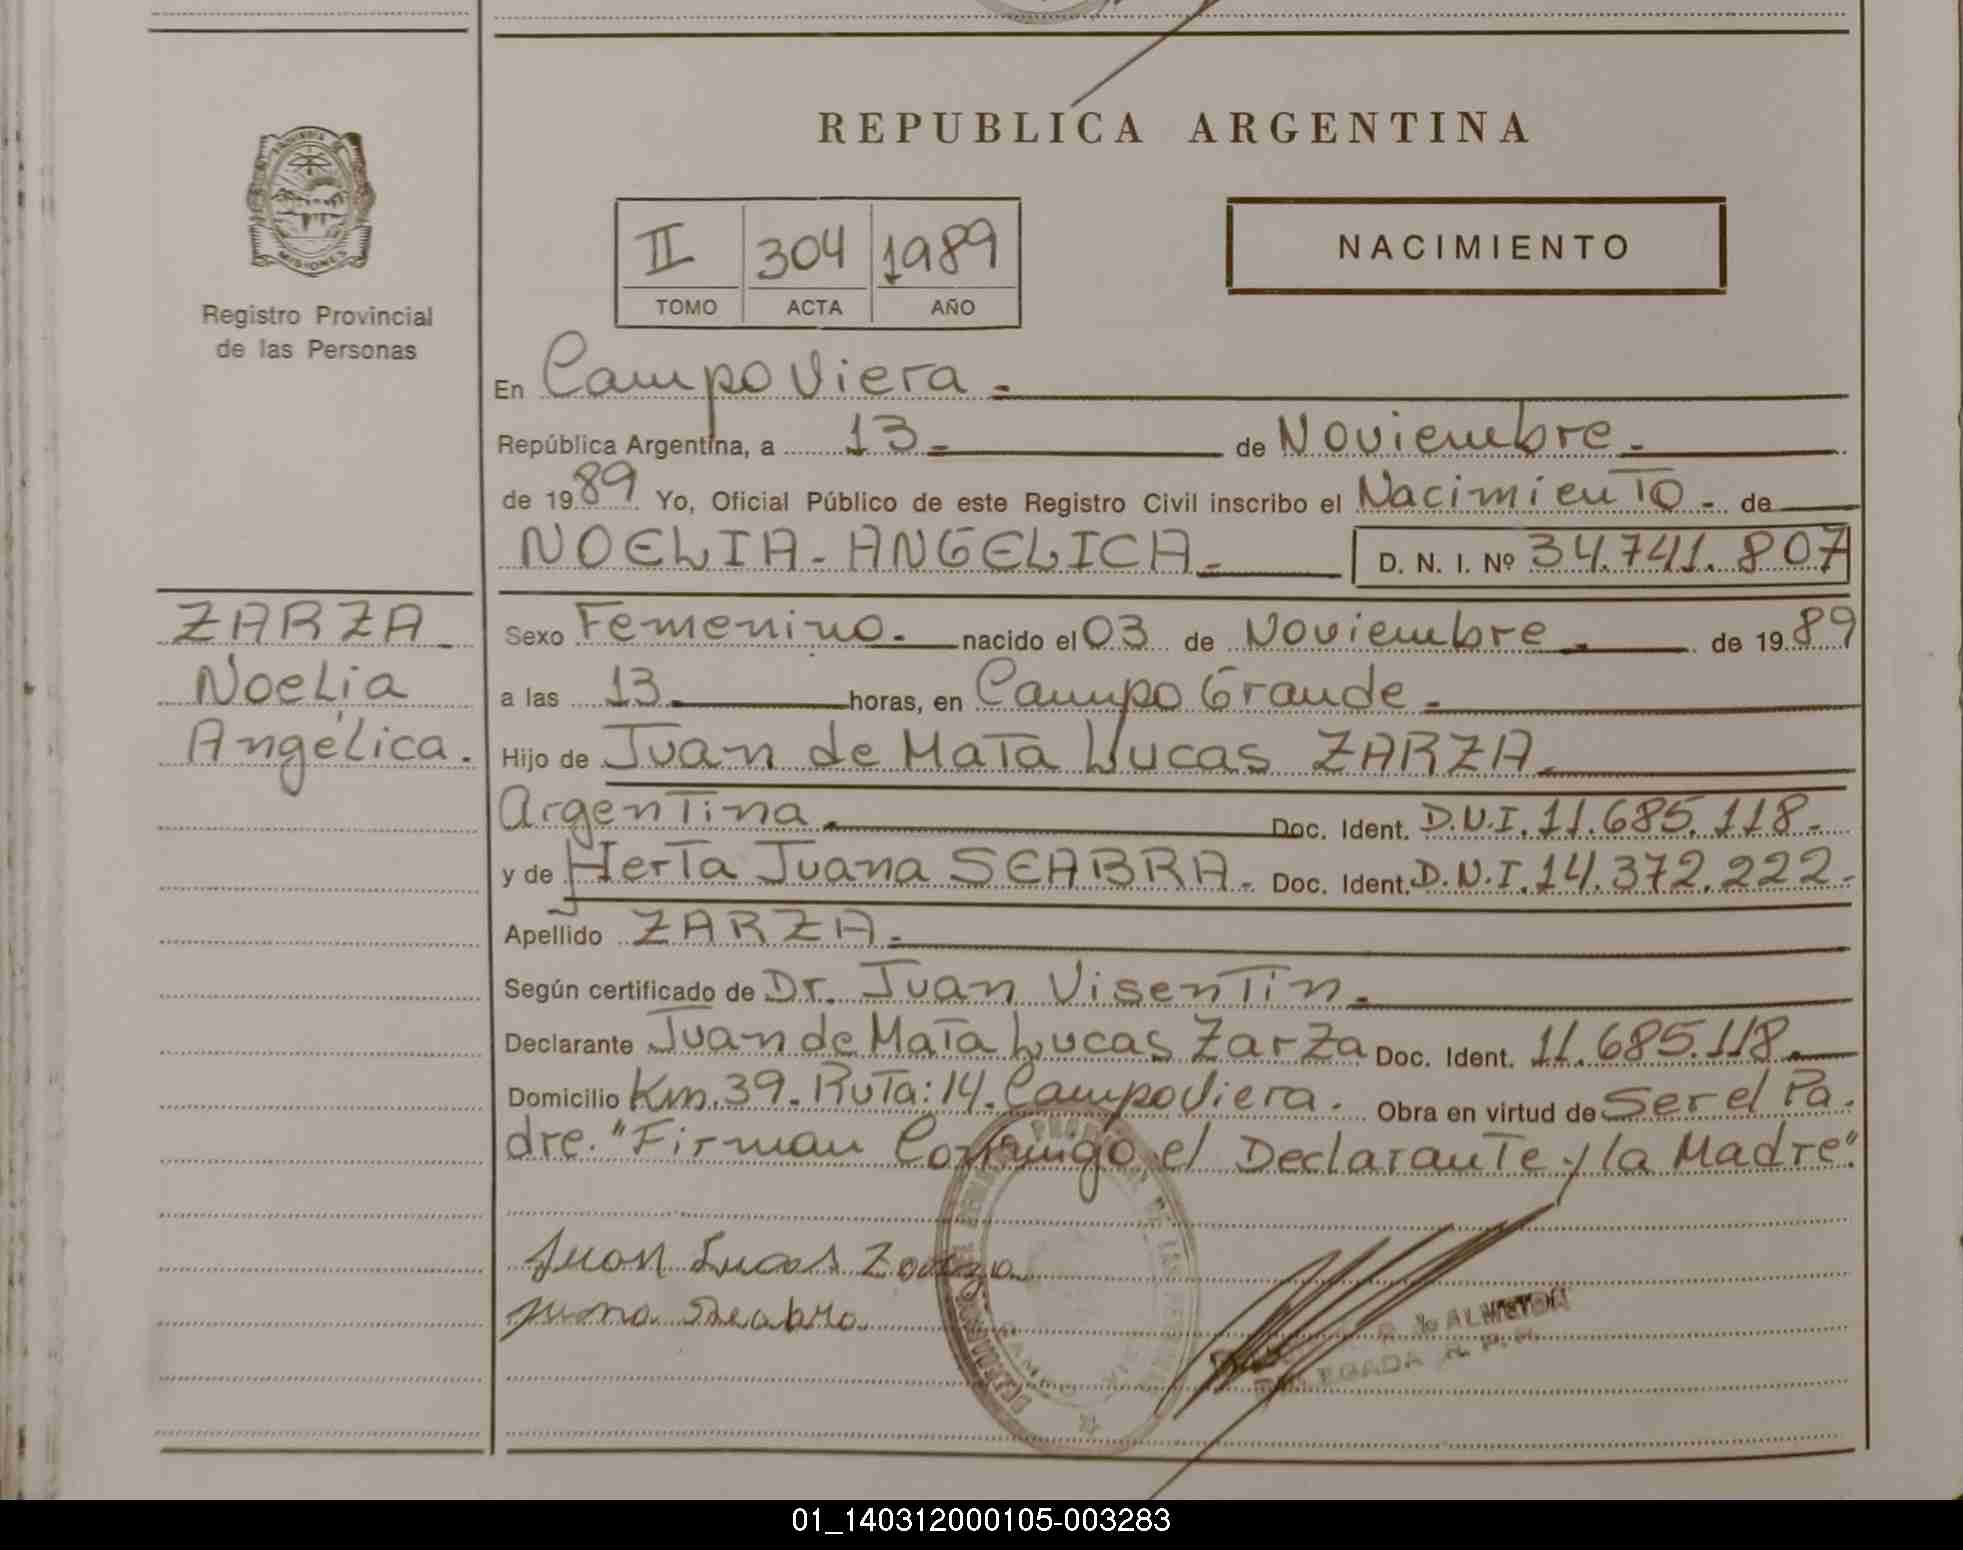 REPUBLICA ARGENTINA
PROVINCIA DE
MISIONES
Registro Provincial
de las Personas
II 304 1989
TOMO ACTA AÑO
NACIMIENTO
En Campo Viera.-
República Argentina, a 13.- de Noviembre.-
de 1989 Yo, Oficial Público de este Registro Civil inscribo el Nacimiento.- de
NOELIA-ANGELICA.- D. N. I. Nº 34.741.807
ZARZA.
Noelia
Angélica.
Sexo Femenino.- nacido el 03 de Noviembre.- de 1989
a las 13.- horas, en Campo Grande.-
Hijo de Juan de Mata Lucas ZARZA.-
Argentina.- Doc. Ident. D.N.I.11.685.118.-
y de Herta Juana SEABRA.- Doc. Ident. D.N.I.14.372.222.-
Apellido ZARZA.-
Según certificado de Dr. Juan Visentin.-
Declarante Juan de Mata Lucas Zarza Doc. Ident. 11.685.118.-
Domicilio Km.39.Ruta:14.Campo Viera. Obra en virtud de Ser el Pa.
dre."Firman Conmigo el Declarante y la Madre".
Juan Lucas Zarza
Juana Seabra
ALMEIDA
DELEGADA R. P. P.
01_140312000105-003283